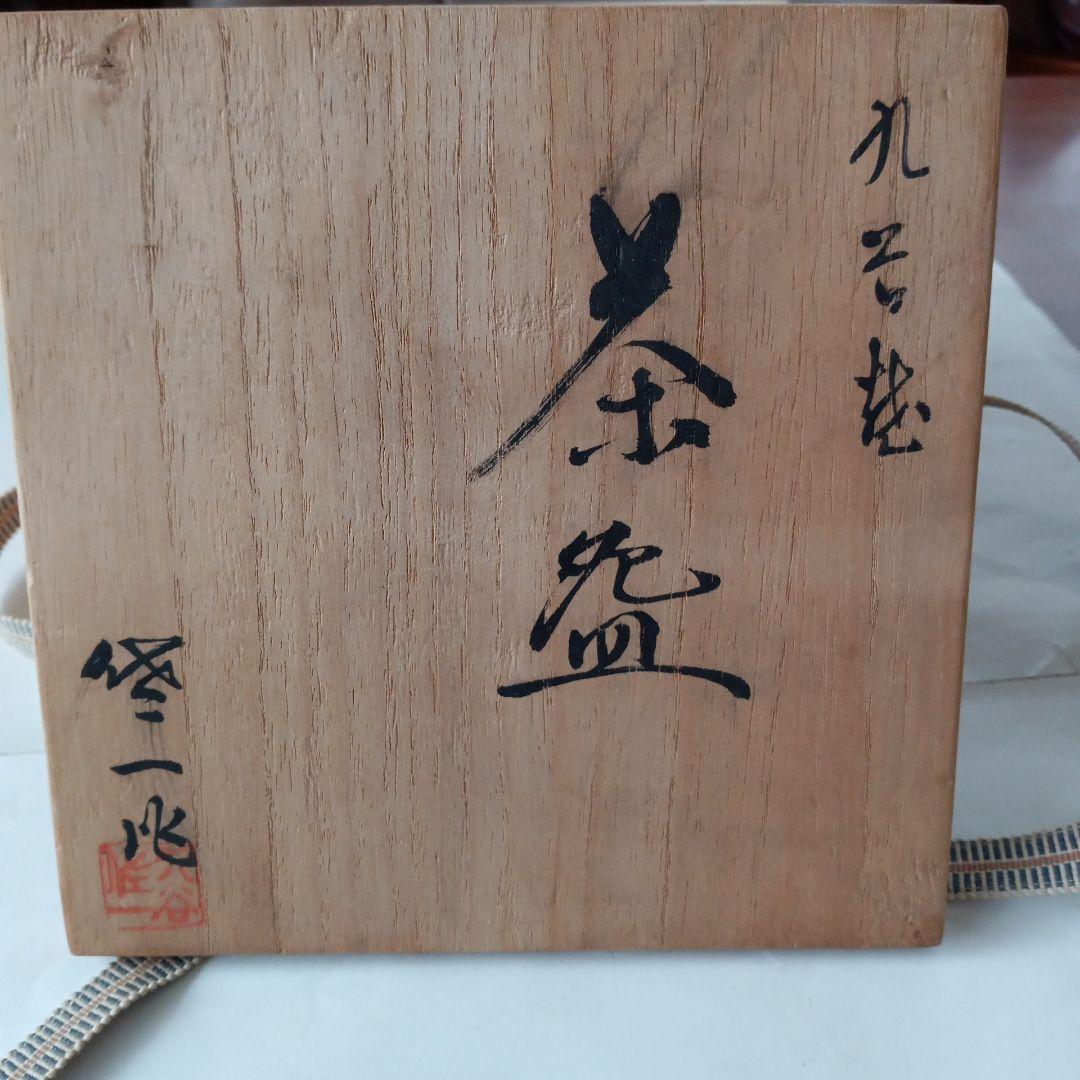 九谷焼
茶盌
一作